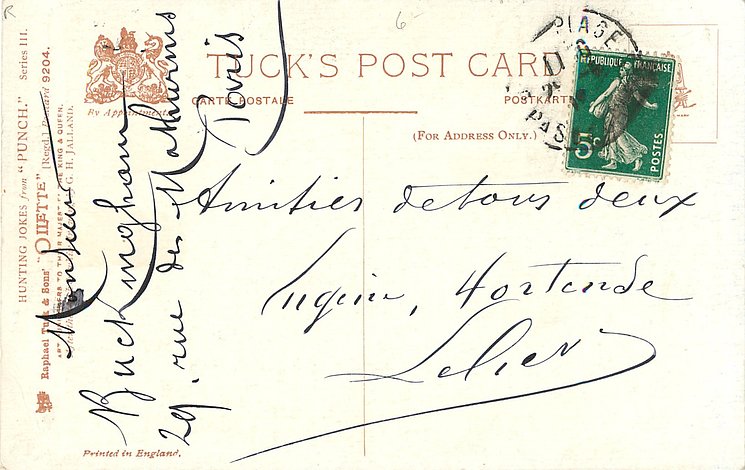 TUCK'S POST CARD
CARTE POSTALE
POSTKARTE
(FOR ADDRESS ONLY.)
By Appointment
HUNTING JOKES from "PUNCH." Series III.
Raphael Tuck & Sons' "OILETTE" [Regd.] Postcard 9204.
G. H. JALLAND.
Printed in England.
PLAGE
PAS
RÉPUBLIQUE FRANÇAISE
5c
POSTES
6-
R
Monsieur
Buckingham
29. rue des Mathurins
Paris
Amitiés de tous deux
Eugénie, Hortende